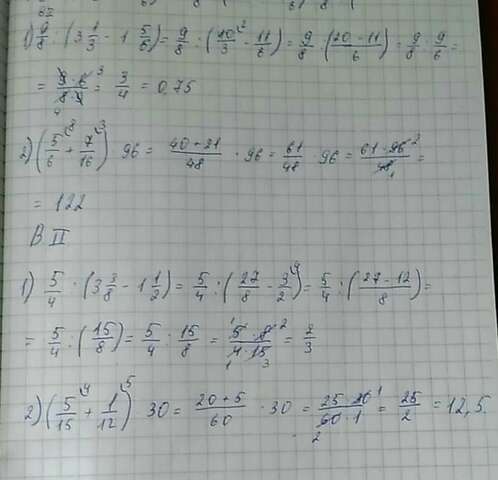 1) 9/8 : (3 1/3 - 1 5/6) = 9/8 : (10/3 - 11/6) = 9/8 : (20-11/6) = 9/8 : 9/6 =
= 9·6/8·9 = 3/4 = 0,75
2) (5/6 + 7/16) · 96 = 40+21/48 · 96 = 61/48 · 96 = 61·96/48 =
= 122
В II
1) 5/4 : (3 3/8 - 1 1/2) = 5/4 : (27/8 - 3/2) = 5/4 : (27-12/8) =
= 5/4 : (15/8) = 5/4 · 15/8 = 5·8/4·15 = 2/3
2) (5/15 + 1/12) · 30 = 20+5/60 · 30 = 25·30/60·1 = 25/2 = 12,5